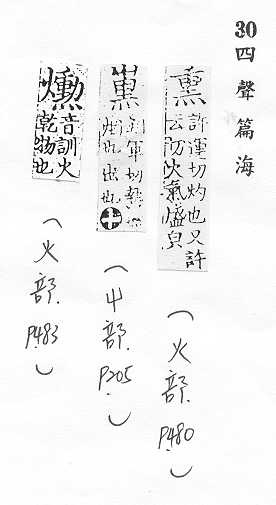 30四聲篇海
熏
許運切灼也又許
云切火氣盛皃
（火部 P480）
許軍切熱也
煙也出也
（屮部 P205）
爋
音訓火
乾物也
（火部 P483）